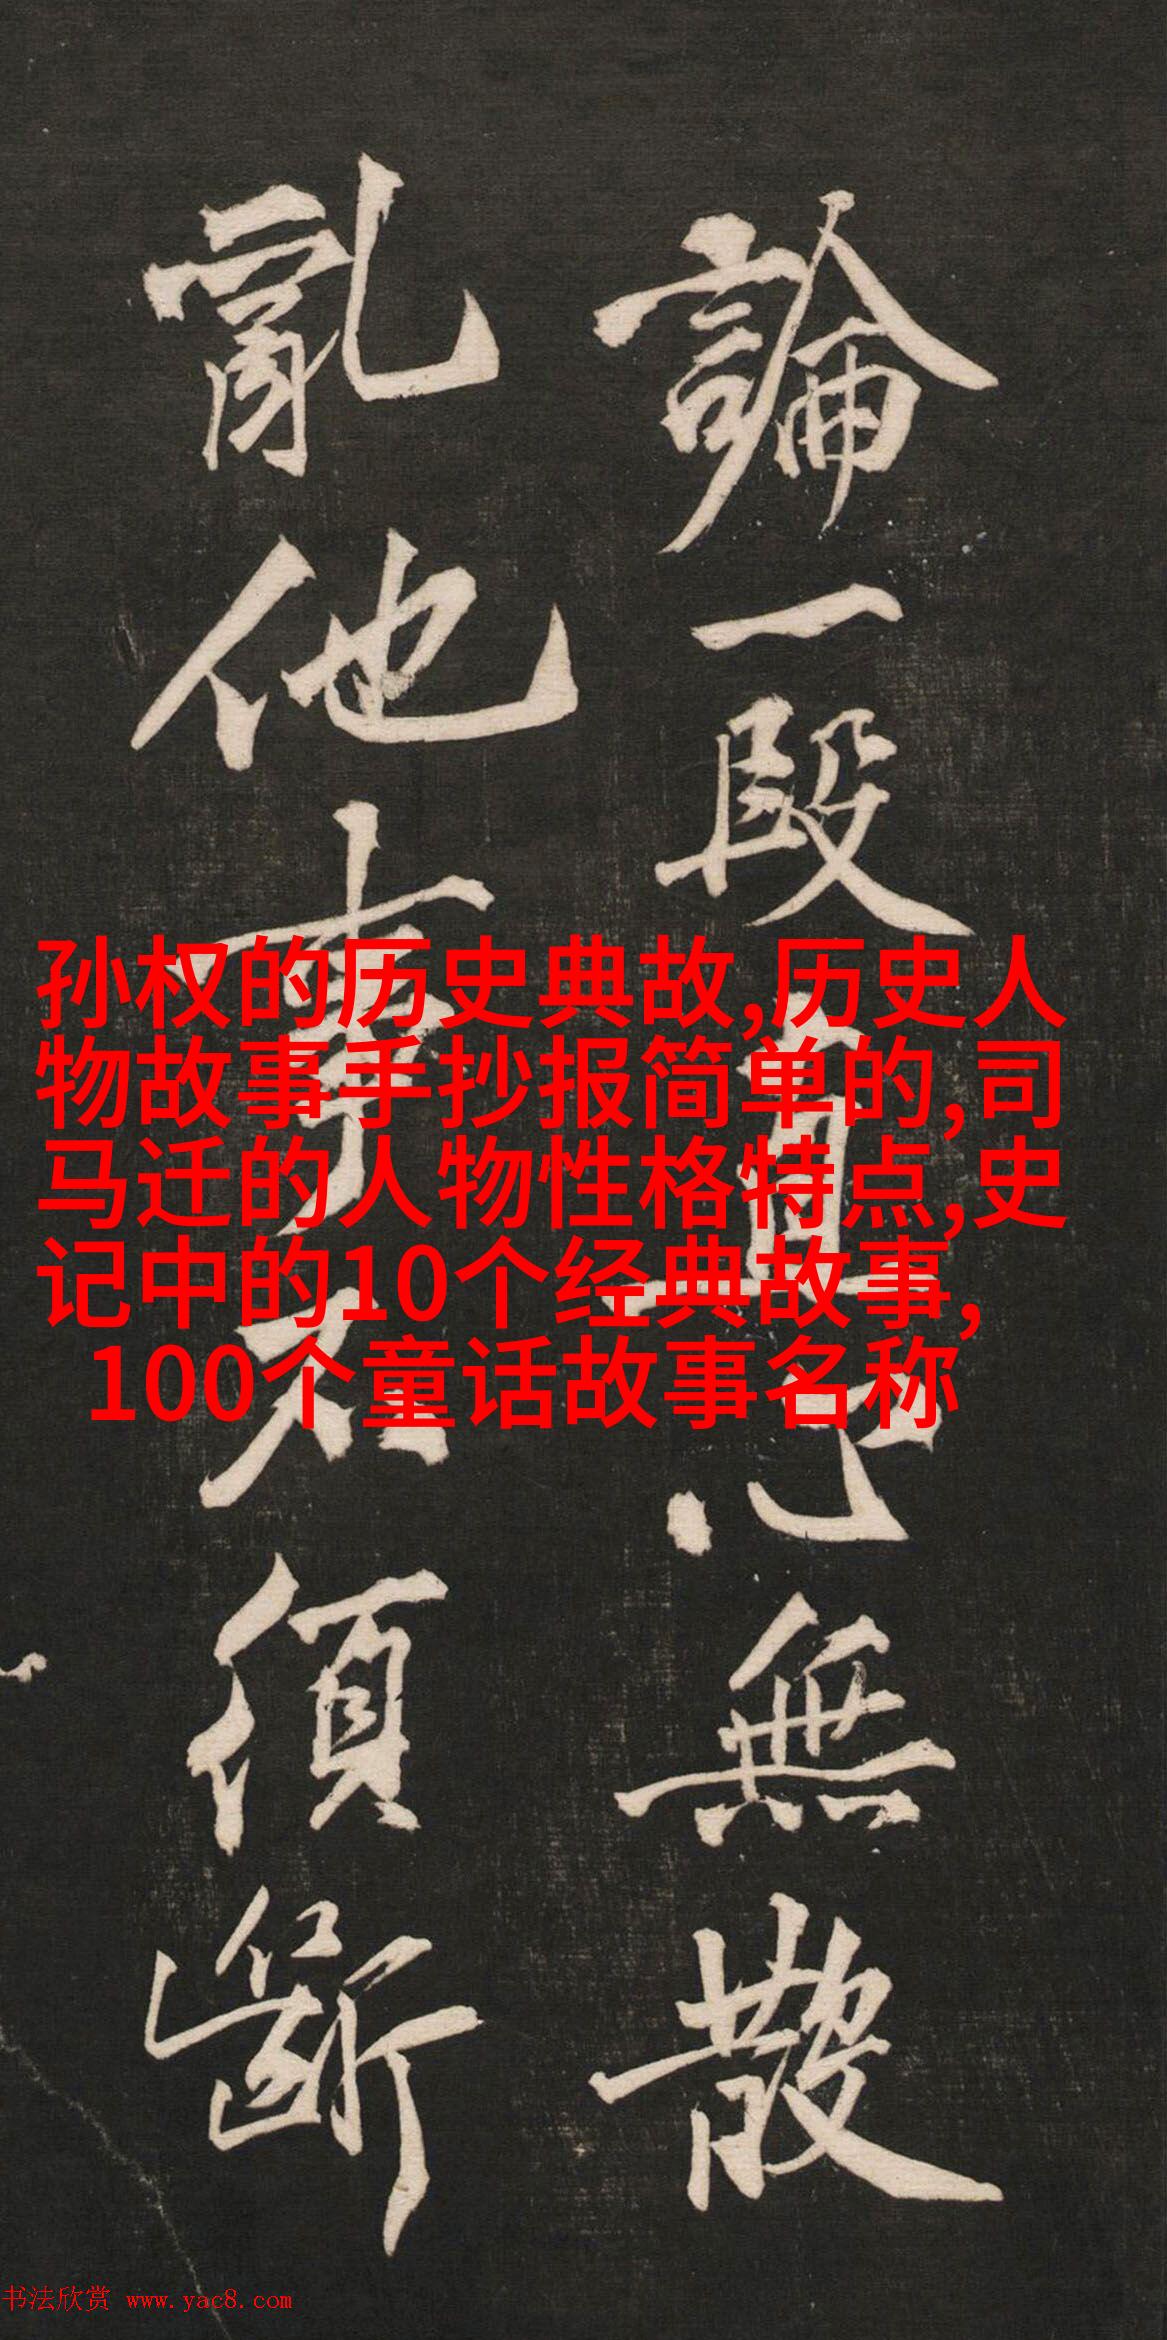 論一段真心無散
亂他事不須斷
孙权的历史典故,历史人
物故事手抄报简单的,司
马迁的人物性格特点,史
记中的10个经典故事,
100个童话故事名称
书法欣赏 www.yac8.com